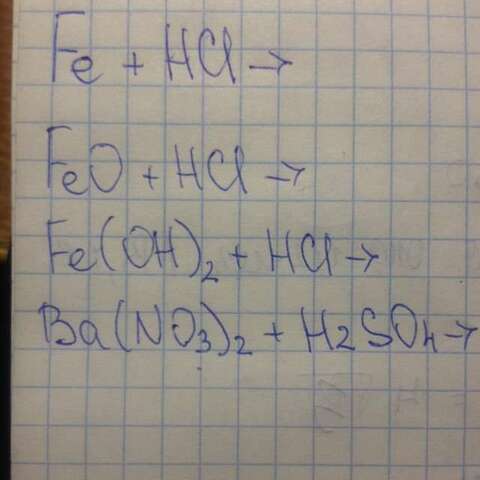 Fe + HCl →
FeO + HCl →
Fe(OH)₂ + HCl →
Ba(NO₃)₂ + H₂SO₄ →